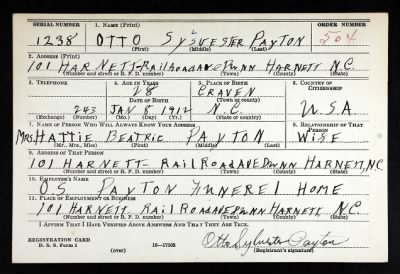 SERIAL NUMBER 1. NAME (Print) ORDER NUMBER
1238 OTTO SYLVESTER PAYTON 504
(First) (Middle) (Last)
2. ADDRESS (Print)
101 HARNETT-RailRoadAve Dunn HARNETT N.C.
(Number and street or R. F. D. number) (Town) (County) (State)
3. TELEPHONE 4. AGE IN YEARS 5. PLACE OF BIRTH 6. COUNTRY OF CITIZENSHIP
28 CRAVEN
DATE OF BIRTH (Town or county)
243 JAN 8 1912 N.C. U.S.A
(Exchange) (Number) (Mo.) (Day) (Yr.) (State or country)
7. NAME OF PERSON WHO WILL ALWAYS KNOW YOUR ADDRESS 8. RELATIONSHIP OF THAT PERSON
Mrs HATTIE BEATRIC PAYTON WIFE
(Mr., Mrs., Miss) (First) (Middle) (Last)
9. ADDRESS OF THAT PERSON
101 HARNETT- RailRoadAve Dunn HARNETT, N.C.
(Number and street or R. F. D. number) (Town) (County) (State)
10. EMPLOYER'S NAME
O.S PAYTON FUNEREl HOME
11. PLACE OF EMPLOYMENT OR BUSINESS
101 HARNETT- RailRoadAve Dunn HARNETT N.C.
(Number and street or R. F. D. number) (Town) (County) (State)
I AFFIRM THAT I HAVE VERIFIED ABOVE ANSWERS AND THAT THEY ARE TRUE.
REGISTRATION CARD Otto Sylvester Payton
D. S. S. Form 1 (over) 16—17105 (Registrant's signature)